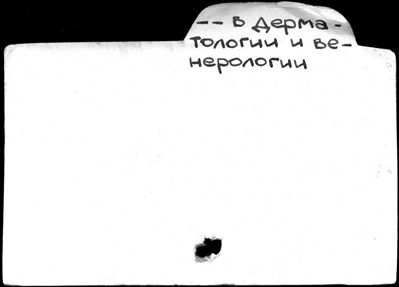 -- в дерма-
тологии и ве-
нерологии